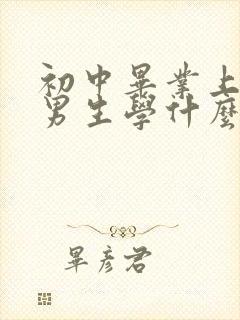 初中畢業上
男生學什麼
畢彥君